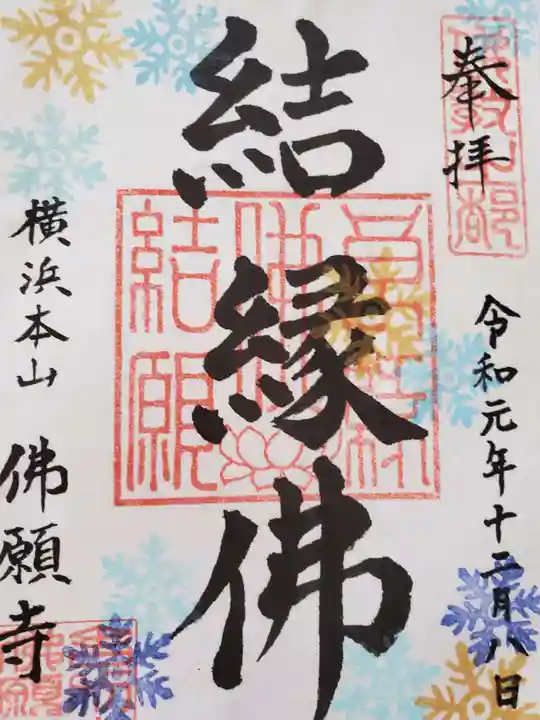 奉拝
令和元年十二月八日
結縁佛
横浜本山 佛願寺